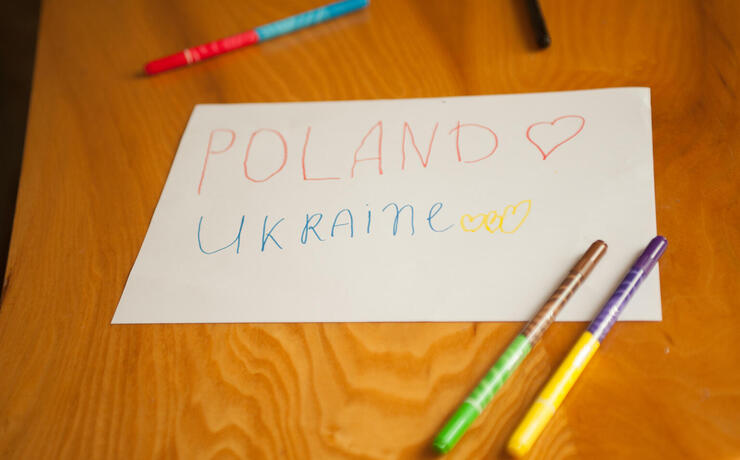 POLAND ♡
UKRAINE ♡♡♡